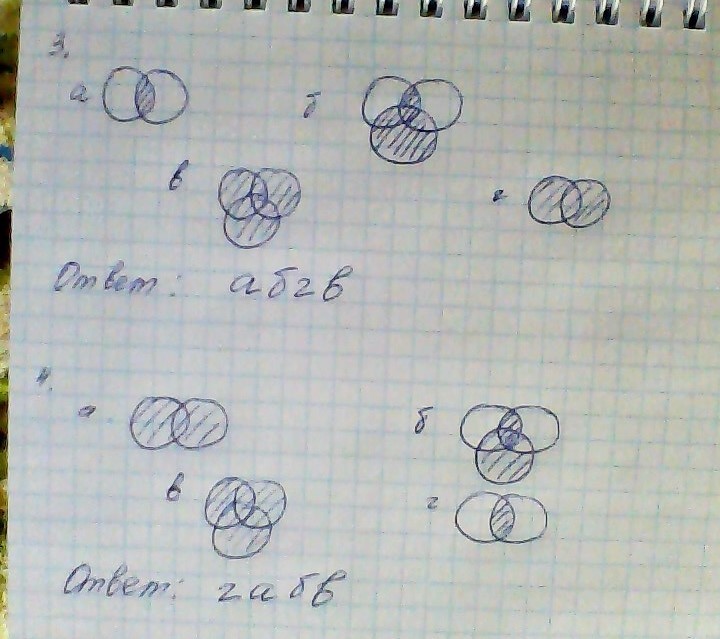 3.
а б
в г
Ответ: а б г в
4.
а б
в г
Ответ: г а б в